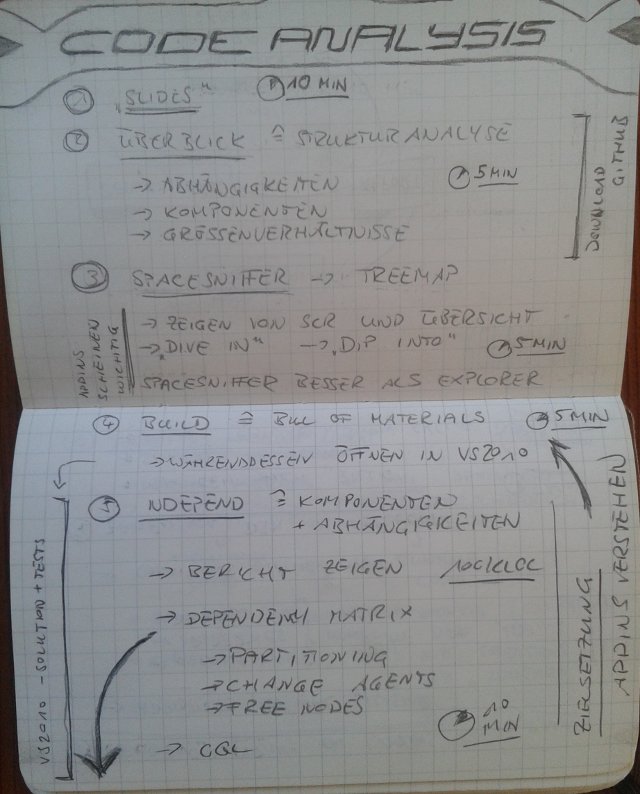 CODE ANALYSIS
① „SLIDES" 10 MIN
② ÜBERBLICK ≙ STRUKTURANALYSE
→ ABHÄNGIGKEITEN 5 MIN
→ KOMPONENTEN
→ GRÖSSENVERHÄLTNISSE
DOWNLOAD
GITHUB
③ SPACESNIFFER → TREEMAP
→ ZEIGEN VON SCR UND ÜBERSICHT
→ „DIVE IN" → „DIP INTO" 5 MIN
SPACESNIFFER BESSER ALS EXPLORER
ADDINS
SCHEINEN
WICHTIG
④ BUILD ≙ BILL OF MATERIALS 5 MIN
→ WÄHRENDDESSEN ÖFFNEN IN VS2010
⑤ NDEPEND ≙ KOMPONENTEN
+ ABHÄNGIGKEITEN
→ BERICHT ZEIGEN 100KLOC
→ DEPENDENCY MATRIX
→ PARTITIONING
→ CHANGE AGENTS
→ FREE NODES
10 MIN
→ CQL
VS2010 - SOLUTION + TESTS
ZIELSETZUNG
ADDINS VERSTEHEN